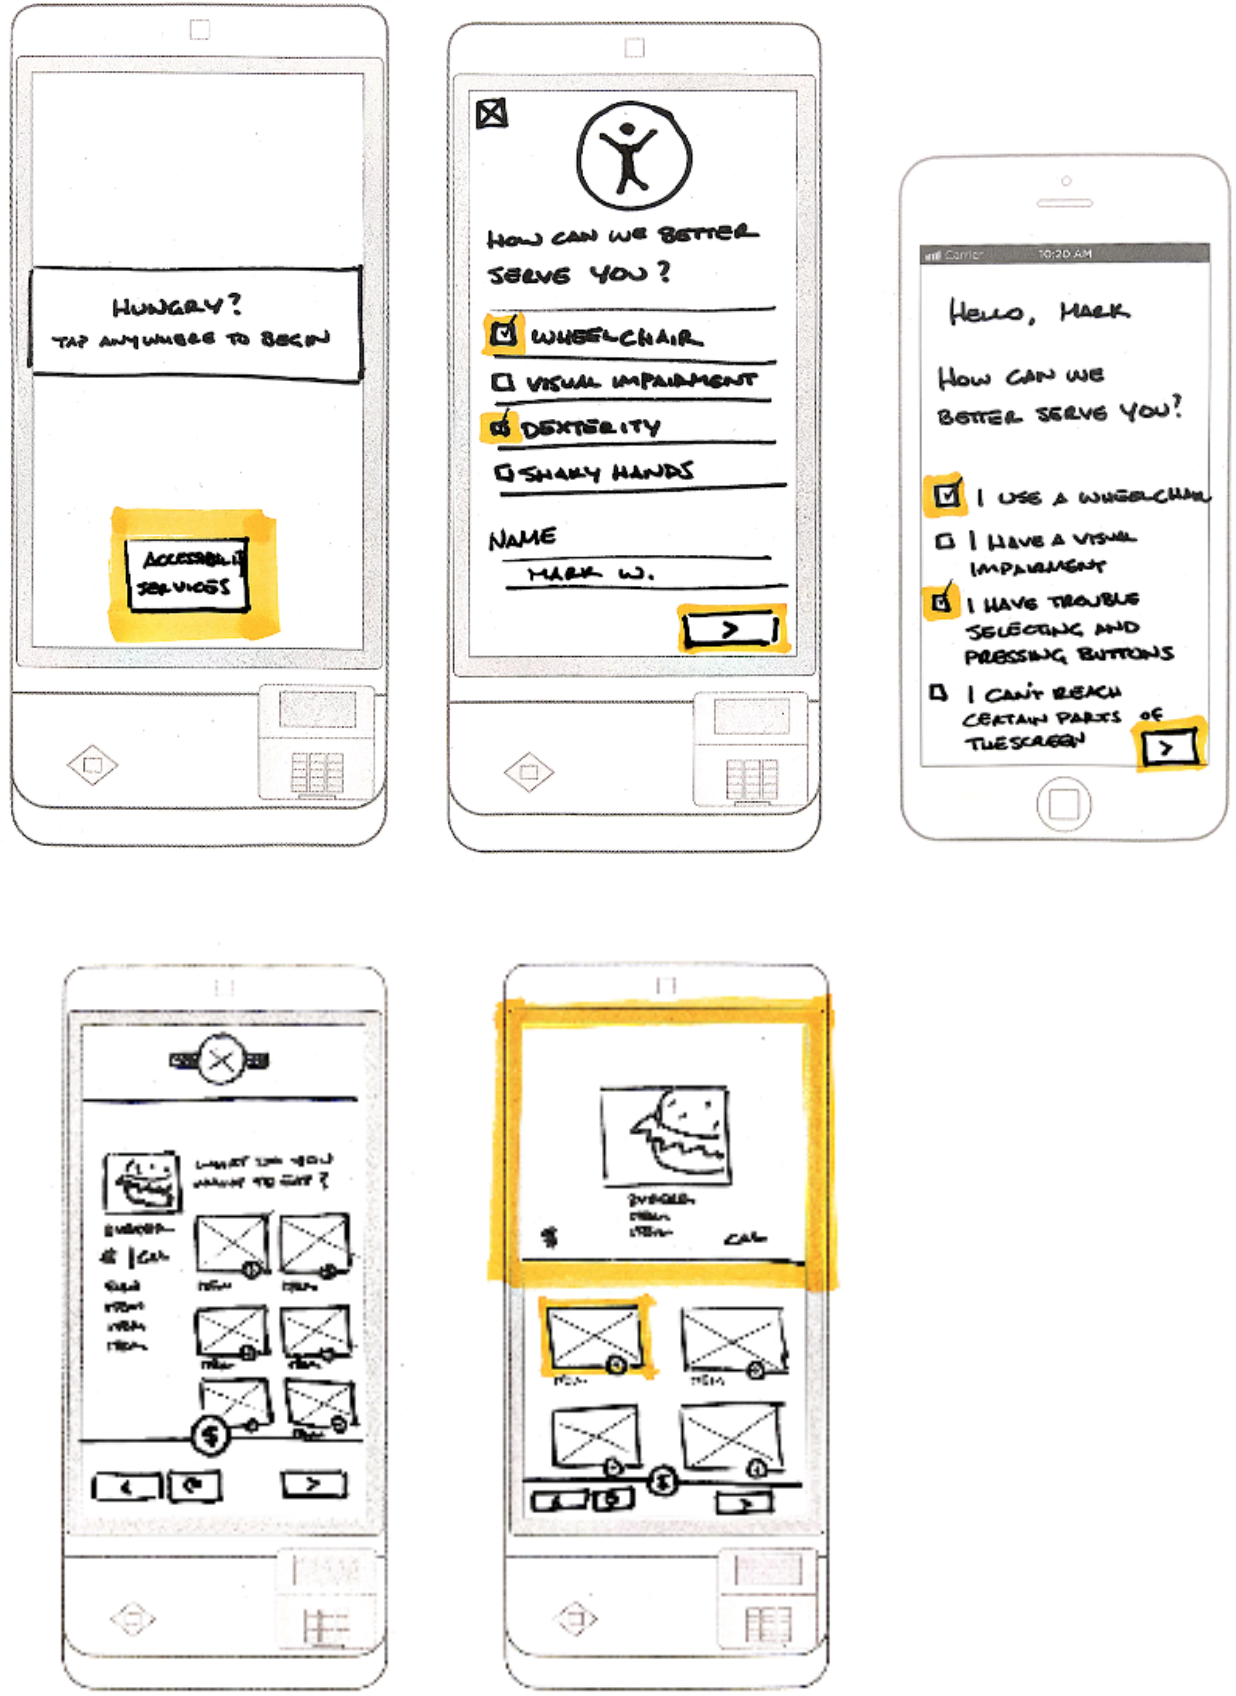 HUNGRY?
TAP ANYWHERE TO BEGIN
ACCESSIBILIT
SERVICES
HOW CAN WE BETTER
SERVE YOU?
WHEELCHAIR
VISUAL IMPAIRMENT
DEXTERITY
SHAKY HANDS
NAME
MARK W.
>
Carrier 10:20 AM
HELLO, MARK
HOW CAN WE
BETTER SERVE YOU?
I USE A WHEELCHAIR
I HAVE A VISUAL
IMPAIRMENT
I HAVE TROUBLE
SELECTING AND
PRESSING BUTTONS
I CAN'T REACH
CERTAIN PARTS OF
THE SCREEN
>
WHAT DO YOU
WANT TO EAT?
BURGER
$ | CAL
ITEM
ITEM
ITEM
ITEM ITEM
ITEM ITEM
ITEM
$
< >
BURGER
ITEM
ITEM
$ CAL
ITEM ITEM
$
< >